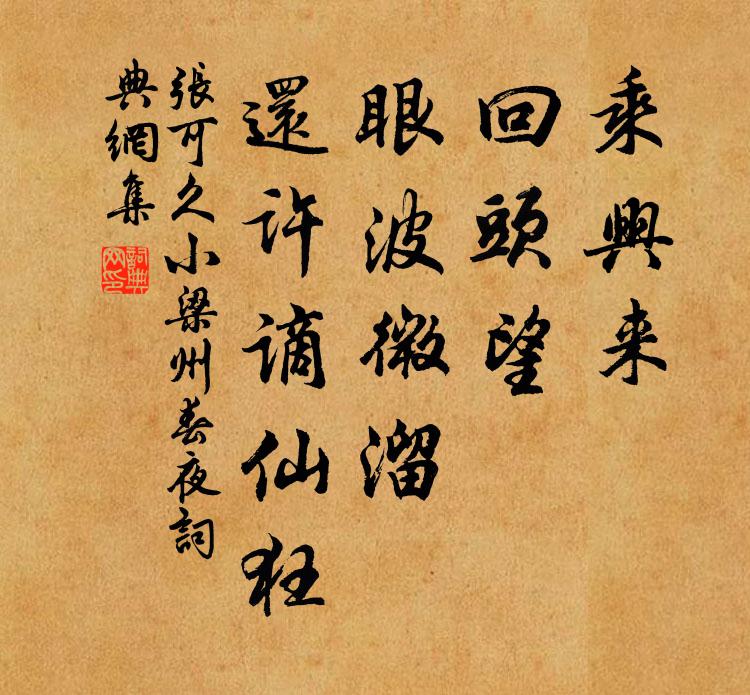 乘興来
回頭望
眼波微溜
還許謫仙狂
張可久小梁州春夜詞
典網集
詞典
网印